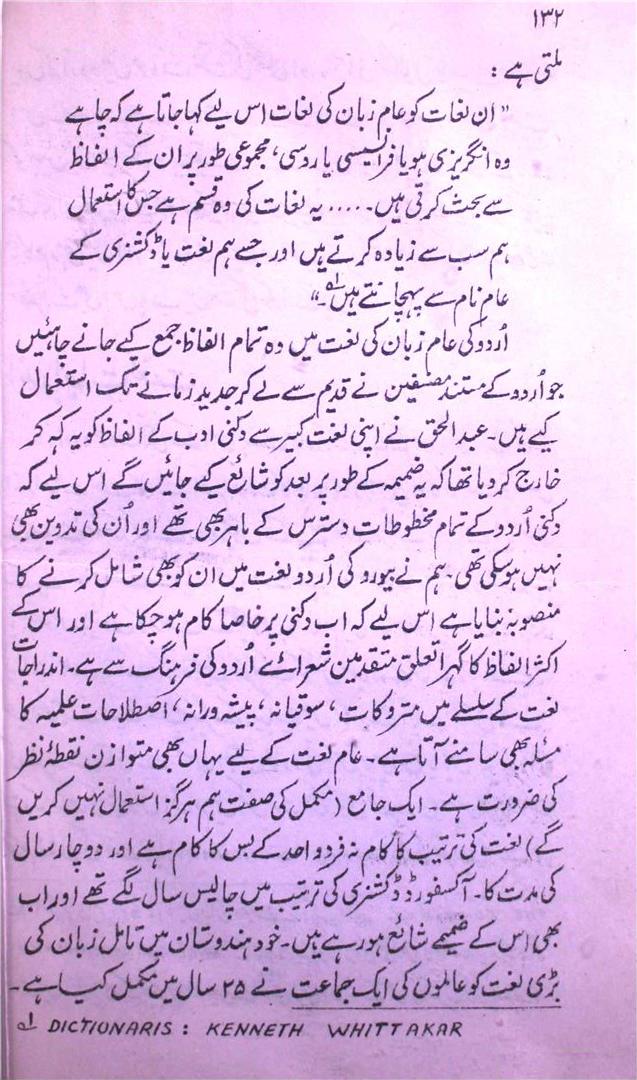 ۱۳۲
ملتی ہے :
"ان لغات کو عام زبان کی لغات اس لیے کہا جاتا ہے کہ چاہے
وہ انگریزی ہو یا فرانسیسی یا روسی، مجموعی طور پر ان کے الفاظ
سے بحث کرتی ہیں۔.... یہ لغات کی وہ قسم ہے جس کا استعمال
ہم سب سے زیادہ کرتے ہیں اور جسے ہم لغت یا ڈکشنری کے
عام نام سے پہچانتے ہیں۔"لہ
اُردو کی عام زبان کی لغت میں وہ تمام الفاظ جمع کیے جانے چاہئیں
جو اُردو کے مستند مصنفین نے قدیم سے لے کر جدید زمانے تک استعمال
کیے ہیں۔ عبدالحق نے اپنی لغت کبیر سے دکنی ادب کے الفاظ کو یہ کہہ کر
خارج کر دیا تھا کہ یہ ضمیمہ کے طور پر بعد کو شائع کیے جائیں گے اس لیے کہ
دکنی اُردو کے تمام مخطوطات دسترس کے باہر بھی تھے اور اُن کی تدوین بھی
نہیں ہو سکی تھی۔ ہم نے بیورو کی اُردو لغت میں ان کو بھی شامل کرنے کا
منصوبہ بنایا ہے اس لیے کہ اب دکنی پر خاصا کام ہو چکا ہے اور اس کے
اکثر الفاظ کا گہرا تعلق متقدمین شعرائے اُردو کی فرہنگ سے ہے۔ اندراجات
لغت کے سلسلے میں متروکات، سوقیانہ، پیشہ ورانہ، اصطلاحات علمیہ کا
مسئلہ بھی سامنے آتا ہے۔ عام لغت کے لیے یہاں بھی متوازن نقطۂ نظر
کی ضرورت ہے۔ ایک جامع (مکمل کی صفت ہم ہرگز استعمال نہیں کریں
گے) لغت کی ترتیب کا کام نہ فرد واحد کے بس کا کام ہے اور دو چار سال
کی مدت کا۔ آکسفورڈ ڈکشنری کی ترتیب میں چالیس سال لگے تھے اور اب
بھی اس کے ضمیمے شائع ہو رہے ہیں۔ خود ہندوستان میں تامل زبان کی
بڑی لغت کو عالموں کی ایک جماعت نے ۲۵ سال میں مکمل کیا ہے۔
لہ DICTIONARIS : KENNETH WHITTAKAR